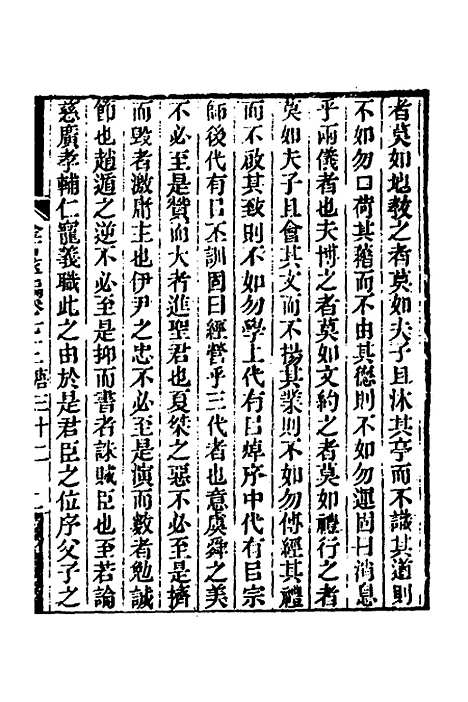 者莫如地教之者莫如夫子且沐其亭而不識其道則
不如勿口荷其藉而不由其傑則不如勿運固曰消息
乎兩儀者也夫博之者莫如文約之者莫如禮行之者
莫如夫子且會其文而不揚其業則不如勿傅經其禮
而不啟其致則不如勿學上代有㠯焯序中代有㠯宗
師後代有㠯丕訓固曰經營乎三代者也意虞舜之美
不必至是贊而大者進聖君也夏桀之惡不必至是擠
而毀者激庸主也伊尹之忠不必至是演而數者勉誠
節也趙遁之逆不必至是抑而書者誅賊臣也至若論
慈廣孝輔仁寵義職此之由於是君臣之位序父子之
金石萃編卷七十二 唐三十二